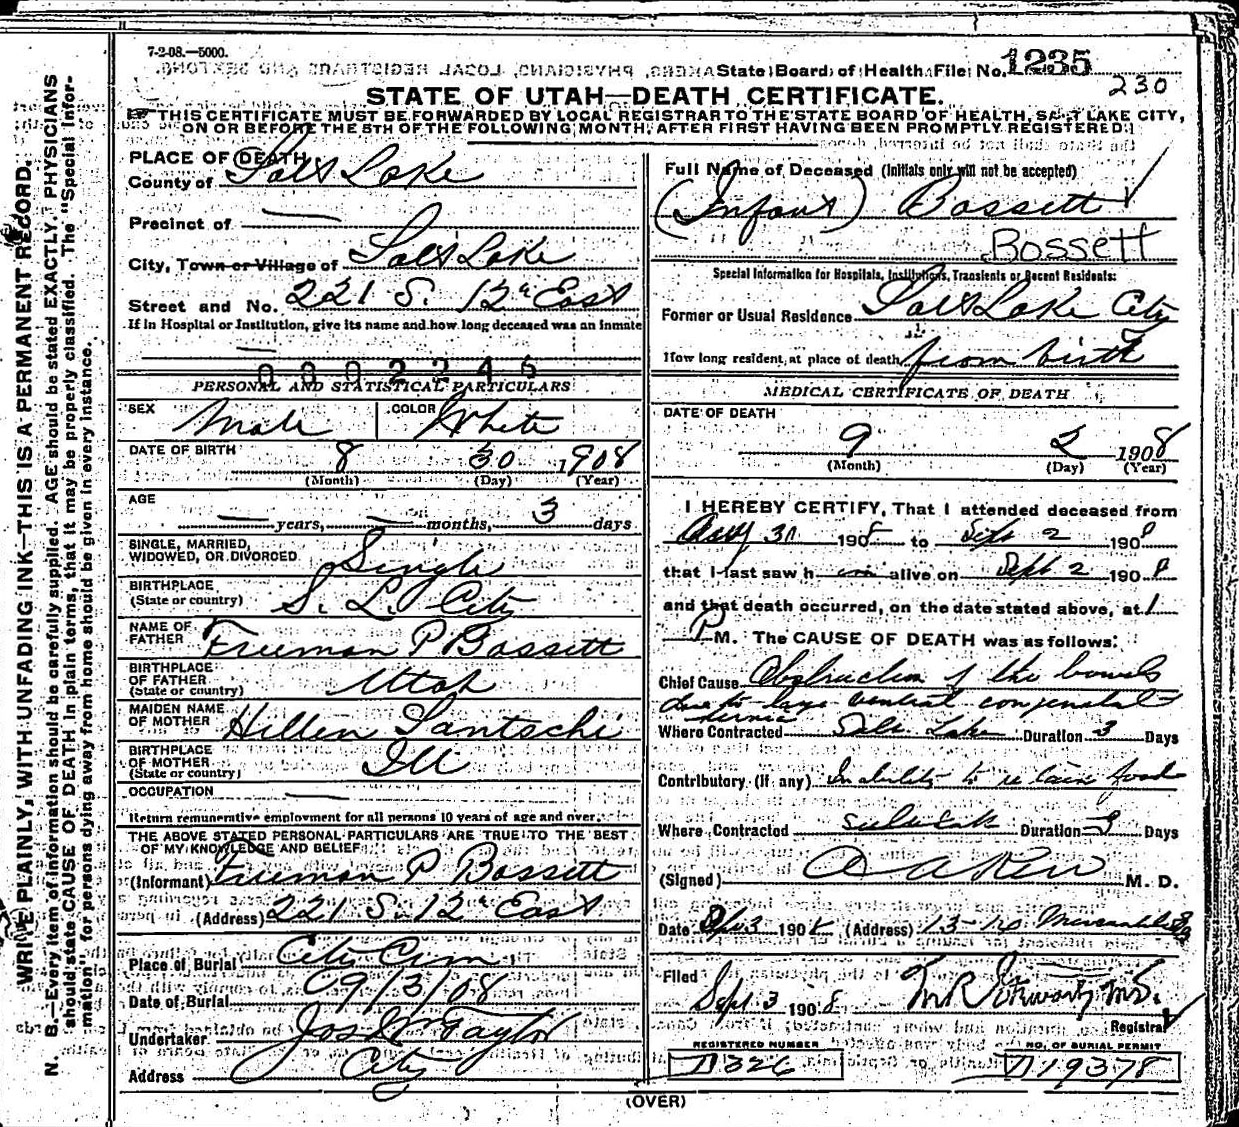 7-2-08.—5000.
State Board of Health File No. 1235
230
STATE OF UTAH—DEATH CERTIFICATE.
THIS CERTIFICATE MUST BE FORWARDED BY LOCAL REGISTRAR TO THE STATE BOARD OF HEALTH, SALT LAKE CITY,
ON OR BEFORE THE 5TH OF THE FOLLOWING MONTH, AFTER FIRST HAVING BEEN PROMPTLY REGISTERED.
WRITE PLAINLY, WITH UNFADING INK—THIS IS A PERMANENT RECORD.
N. B.—Every item of information should be carefully supplied. AGE should be stated EXACTLY. PHYSICIANS
should state CAUSE OF DEATH in plain terms, that it may be properly classified. The "Special Infor-
mation" for persons dying away from home should be given in every instance.
PLACE OF DEATH
County of Salt Lake
Precinct of —
City, Town or Village of Salt Lake
Street and No. 221 S. 12th East
If in Hospital or Institution, give its name and how long deceased was an inmate
—
0002245
PERSONAL AND STATISTICAL PARTICULARS
SEX Male COLOR White
DATE OF BIRTH 8 30 1908
(Month) (Day) (Year)
AGE
— years, — months, 3 days
SINGLE, MARRIED,
WIDOWED, OR DIVORCED Single
BIRTHPLACE
(State or country) S. L. City
NAME OF
FATHER Freeman P Bassett
BIRTHPLACE
OF FATHER
(State or country) Utah
MAIDEN NAME
OF MOTHER Hellen Santschi
BIRTHPLACE
OF MOTHER
(State or country) Ill
OCCUPATION —
Return remunerative employment for all persons 10 years of age and over.
THE ABOVE STATED PERSONAL PARTICULARS ARE TRUE TO THE BEST
OF MY KNOWLEDGE AND BELIEF
(Informant) Freeman P Bassett
(Address) 221 S. 12th East
Place of Burial City Cem
Date of Burial 09/3/08
Undertaker Jos Wm Taylor
Address City
Full Name of Deceased (Initials only will not be accepted)
(Infant) Bassett
Bossett
Special Information for Hospitals, Institutions, Transients or Recent Residents:
Former or Usual Residence Salt Lake City
How long resident at place of death from birth
MEDICAL CERTIFICATE OF DEATH
DATE OF DEATH
9 2 1908
(Month) (Day) (Year)
I HEREBY CERTIFY, That I attended deceased from
Aug 30 1908 to Sept 2 1908
that I last saw him alive on Sept 2 1908
and that death occurred, on the date stated above, at 1
P M. The CAUSE OF DEATH was as follows:
Chief Cause Obstruction of the bowels
due to large ventral congenital
hernia
Where Contracted Salt Lake Duration 3 Days
Contributory (if any) Inability to retain food
Where Contracted Salt Lake Duration 3 Days
(Signed) M. D.
Date Sep 3 1908 (Address) 13-14 Mercantile Blg
Filed Sept 3 1908 M R Stewart M.D.
Registrar
REGISTERED NUMBER NO. OF BURIAL PERMIT
D 326 D 19378
(OVER)